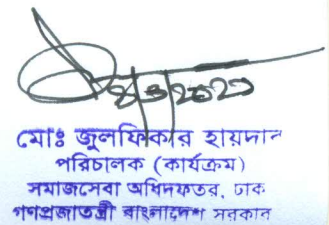 মোঃ জুলফিকার হায়দার
পরিচালক (কার্যক্রম)
সমাজসেবা অধিদফতর, ঢাক
গণপ্রজাতন্ত্রী বাংলাদেশ সরকার